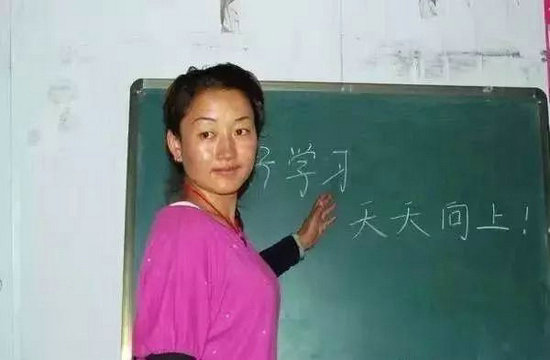 好学习
天天向上！